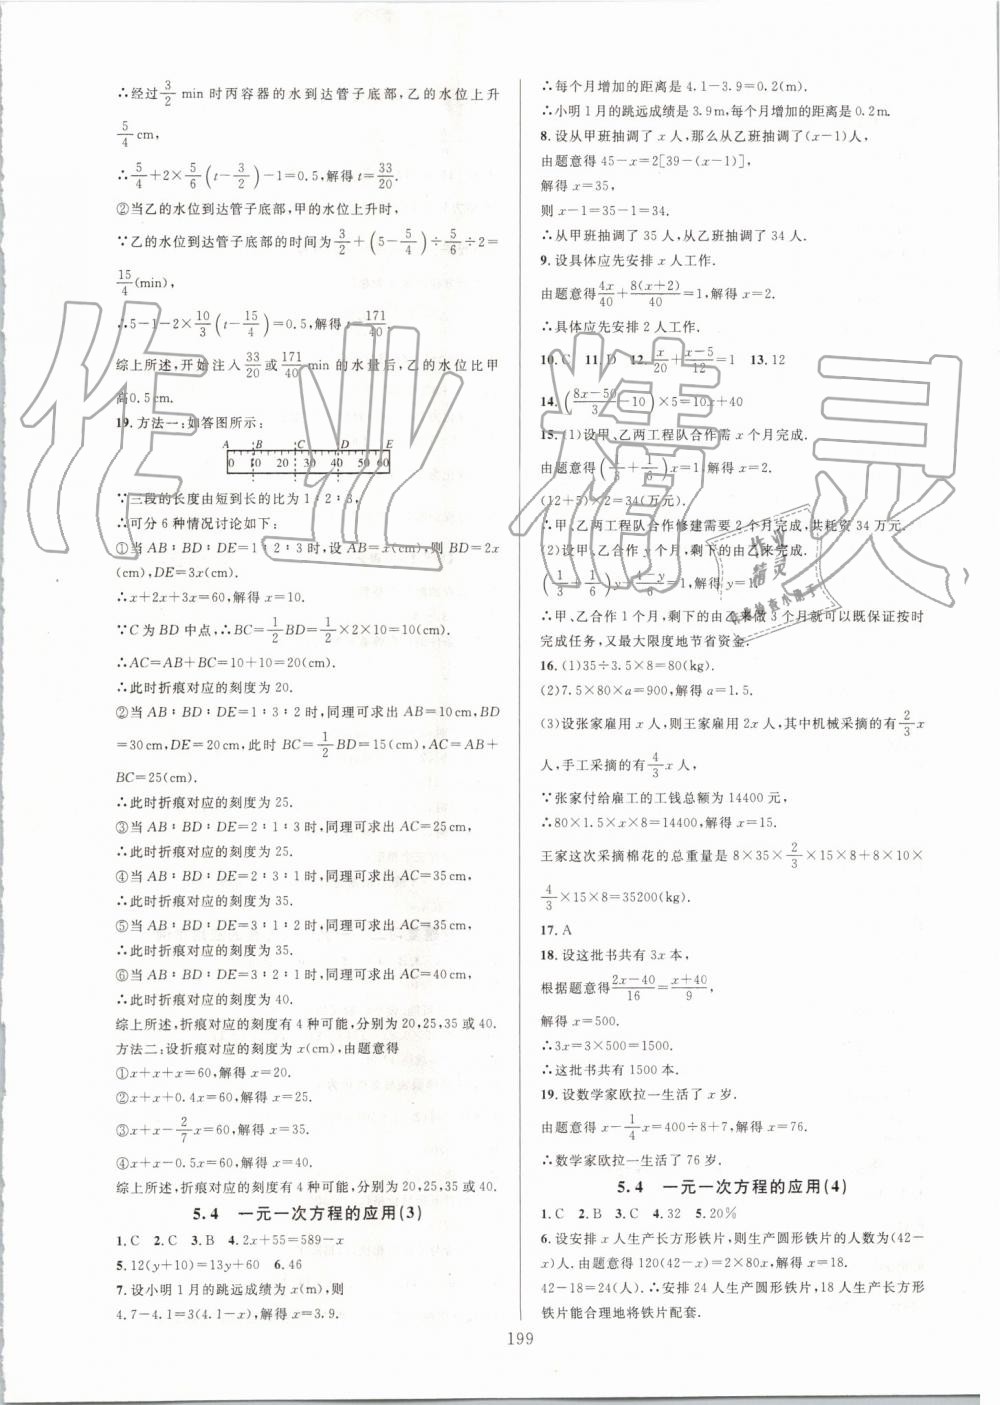 ∴经过3/2 min时丙容器的水到达管子底部,乙的水位上升
5/4 cm,
∴5/4+2×5/6(t-3/2)-1=0.5,解得t=33/20.
②当乙的水位到达管子底部,甲的水位上升时,
∵乙的水位到达管子底部的时间为3/2+(5-5/4)÷5/6÷2=
15/4(min),
∴5-1-2×10/3(t-15/4)=0.5,解得t=171/40.
综上所述,开始注入33/20或171/40 min的水量后,乙的水位比甲
高0.5 cm.
19.方法一:如答图所示:
A B C D E
0 10 20 30 40 50 60
∵三段的长度由短到长的比为1∶2∶3,
∴可分6种情况讨论如下:
①当AB∶BD∶DE=1∶2∶3时,设AB=x(cm),则BD=2x
(cm),DE=3x(cm).
∴x+2x+3x=60,解得x=10.
∵C为BD中点,∴BC=1/2BD=1/2×2×10=10(cm).
∴AC=AB+BC=10+10=20(cm).
∴此时折痕对应的刻度为20.
②当AB∶BD∶DE=1∶3∶2时,同理可求出AB=10cm,BD
=30cm,DE=20cm,此时BC=1/2BD=15(cm),AC=AB+
BC=25(cm).
∴此时折痕对应的刻度为25.
③当AB∶BD∶DE=2∶1∶3时,同理可求出AC=25cm,
∴此时折痕对应的刻度为25.
④当AB∶BD∶DE=2∶3∶1时,同理可求出AC=35cm,
∴此时折痕对应的刻度为35.
⑤当AB∶BD∶DE=3∶1∶2时,同理可求出AC=35cm,
∴此时折痕对应的刻度为35.
⑥当AB∶BD∶DE=3∶2∶1时,同理可求出AC=40cm,
∴此时折痕对应的刻度为40.
综上所述,折痕对应的刻度有4种可能,分别为20,25,35或40.
方法二:设折痕对应的刻度为x(cm),由题意得
①x+x+x=60,解得x=20.
②x+x+0.4x=60,解得x=25.
③x+x-2/7x=60,解得x=35.
④x+x-0.5x=60,解得x=40.
综上所述,折痕对应的刻度有4种可能,分别为20,25,35或40.
5.4 一元一次方程的应用(3)
1.C 2.C 3.B 4.2x+55=589-x
5.12(y+10)=13y+60 6.46
7.设小明1月的跳远成绩为x(m),则
4.7-4.1=3(4.1-x),解得x=3.9.
∴每个月增加的距离是4.1-3.9=0.2(m).
∴小明1月的跳远成绩是3.9m,每个月增加的距离是0.2m.
8.设从甲班抽调了x人,那么从乙班抽调了(x-1)人,
由题意得45-x=2[39-(x-1)],
解得x=35,
则x-1=35-1=34.
∴从甲班抽调了35人,从乙班抽调了34人.
9.设具体应先安排x人工作.
由题意得4x/40+8(x+2)/40=1,解得x=2.
∴具体应先安排2人工作.
10.C 11.D 12.x/20+x-5/12=1 13.12
14.(8x-50/3-10)×5=10x+40
15.(1)设甲、乙两工程队合作需x个月完成.
由题意得(1/3+1/6)x=1,解得x=2.
(12+5)×2=34(万元).
∴甲、乙两工程队合作修建需要2个月完成,共耗资34万元.
(2)设甲、乙合作y个月,剩下的由乙来完成.
(1/3+1/6)y+4-y/6=1,解得y=1.
∴甲、乙合作1个月,剩下的由乙来做3个月就可以既保证按时
完成任务,又最大限度地节省资金.
16.(1)35÷3.5×8=80(kg).
(2)7.5×80×a=900,解得a=1.5.
(3)设张家雇用x人,则王家雇用2x人,其中机械采摘的有2/3x
人,手工采摘的有4/3x人,
∵张家付给雇工的工钱总额为14400元,
∴80×1.5×x×8=14400,解得x=15.
王家这次采摘棉花的总重量是8×35×2/3×15×8+8×10×
4/3×15×8=35200(kg).
17.A
18.设这批书共有3x本,
根据题意得2x-40/16=x+40/9,
解得x=500.
∴3x=3×500=1500.
∴这批书共有1500本.
19.设数学家欧拉一生活了x岁.
由题意得x-1/4x=400÷8+7,解得x=76.
∴数学家欧拉一生活了76岁.
5.4 一元一次方程的应用(4)
1.C 2.B 3.C 4.32 5.20%
6.设安排x人生产长方形铁片,则生产圆形铁片的人数为(42-
x)人.由题意得120(42-x)=2×80x,解得x=18.
42-18=24(人).∴安排24人生产圆形铁片,18人生产长方形
铁片能合理地将铁片配套.
199
作业精灵
作业
精灵
作业检查小助手